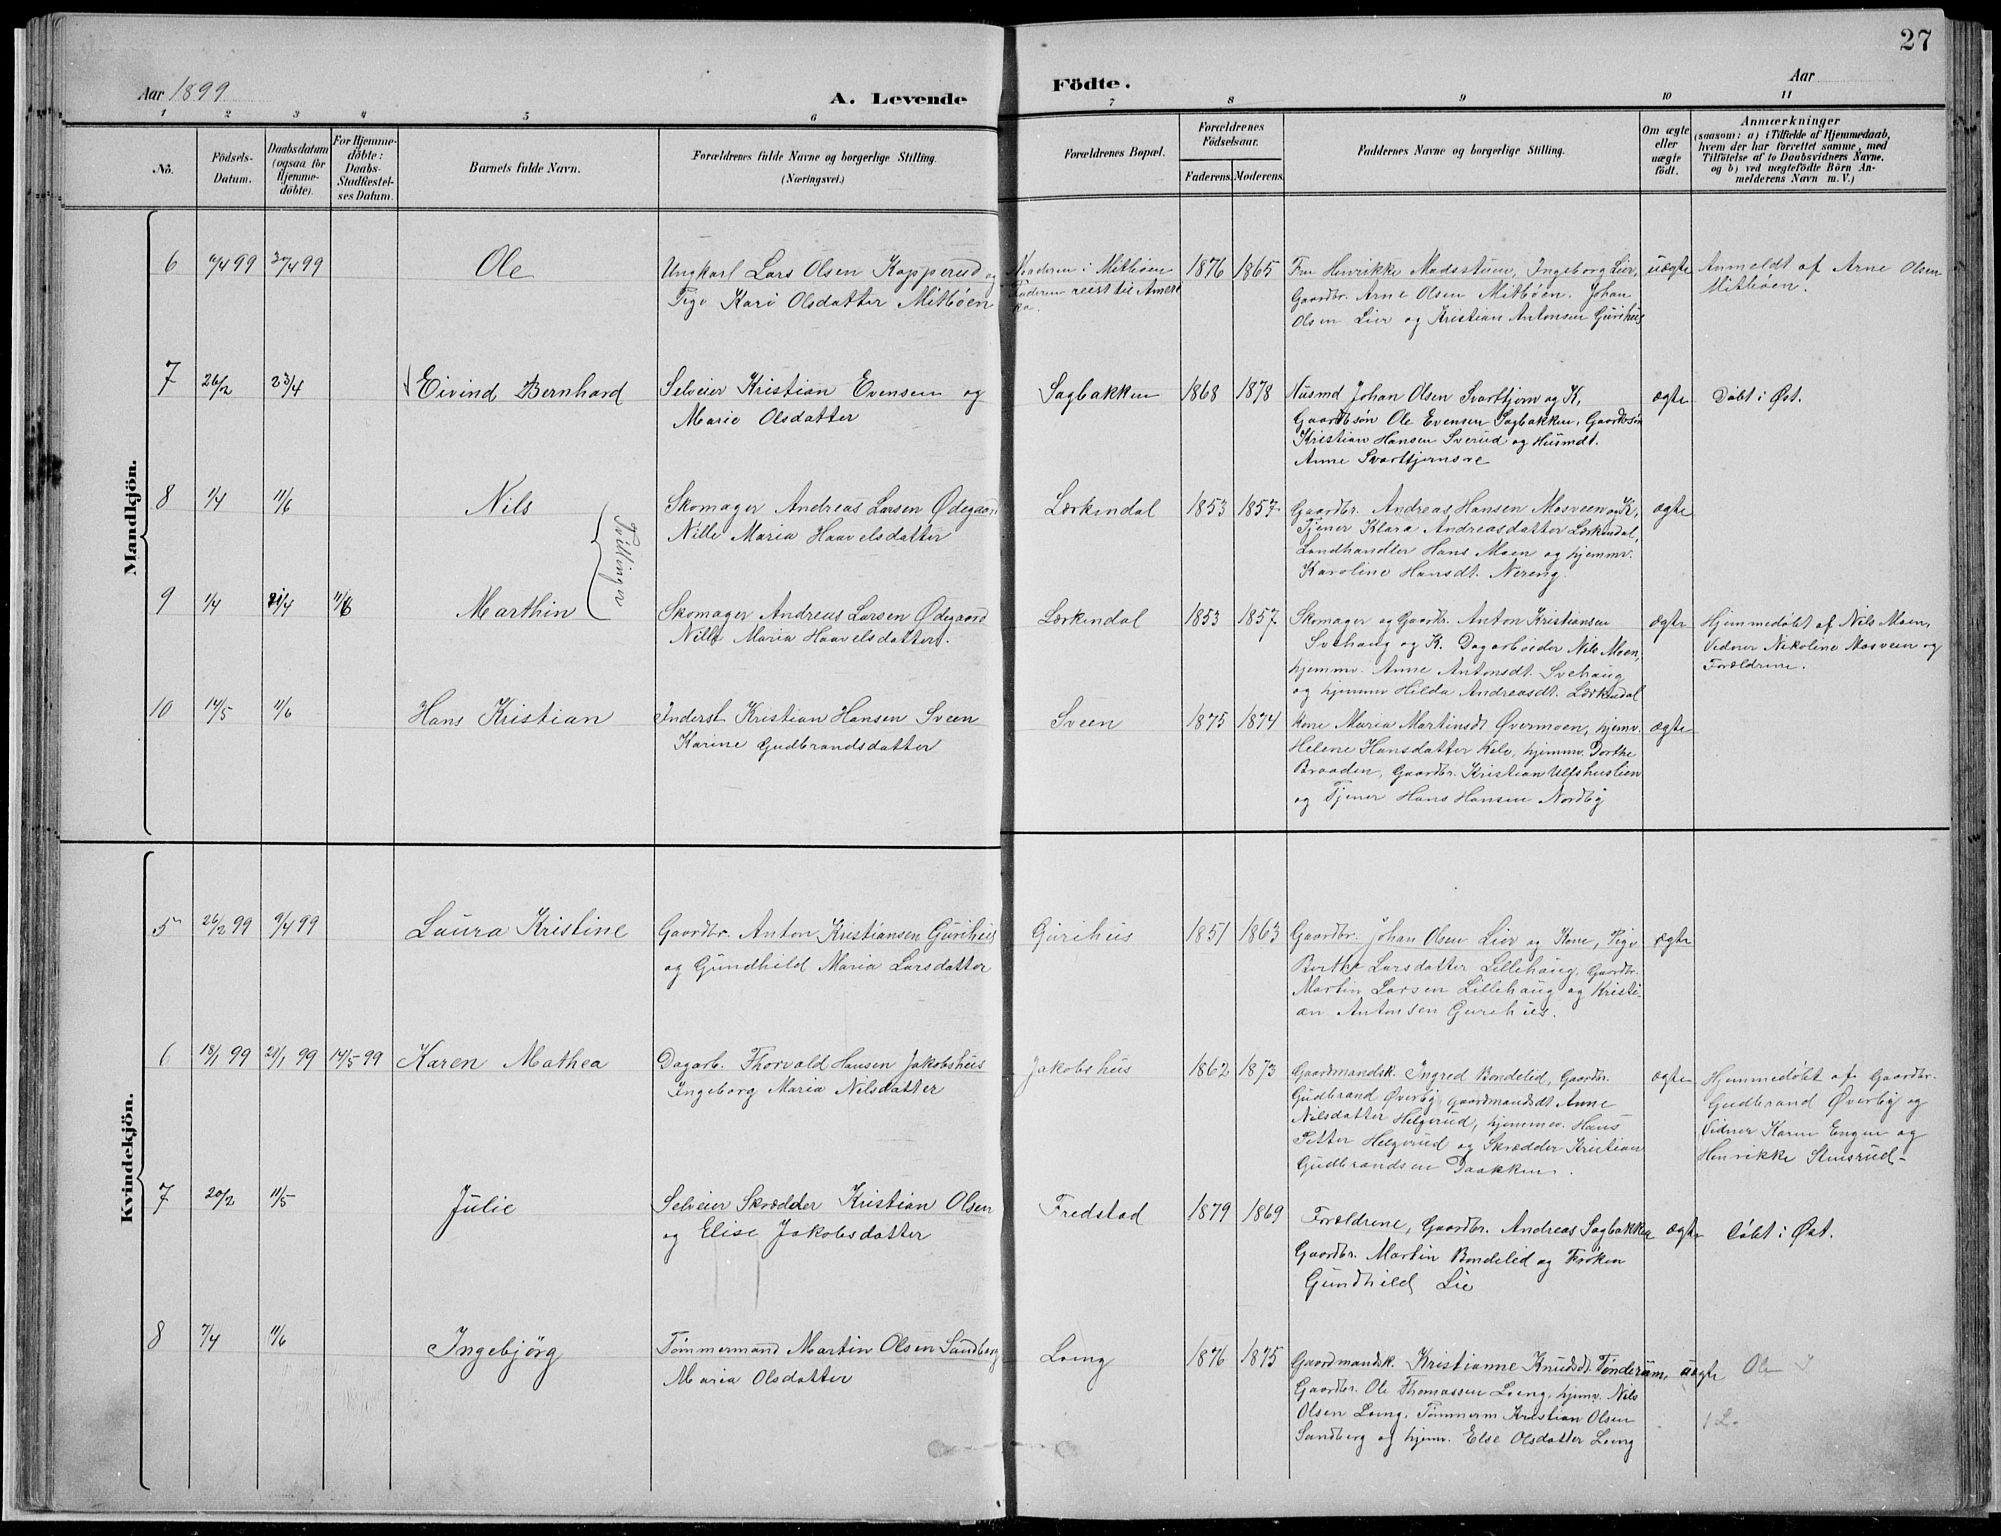 27
Aar 1899
A. Levende
Födte.
Aar
1 2 3 4 5 6 7 8 9 10 11
No.
Födsels-
Datum.
Daabsdatum
(ogsaa för
Hjemme-
döbte).
For Hjemme-
döbte:
Daabs-
Stadfæstel-
ses Datum.
Barnets fulde Navn.
Forældrenes fulde Navne og borgerlige Stilling.
(Næringsvei.)
Forældrenes Bopæl.
Forældrenes
Födselsaar.
Faderens. Moderens.
Faddernes Navne og borgerlige Stilling.
Om ægte
eller
uægte
födt.
Anmærkninger
(saasom: a) i Tilfælde af Hjemmedaab,
hvem der har forrettet samme, med
Tilföielse af to Daabsvidners Navne.
og b) ved uægtefödte Börn An-
melderens Navn m. V.)
Mandkjön.
6
11/4 99
30/4 99
Ole
Ungkarl Lars Olsen Kopperud og
Pige Kari Olsdatter Mitbøen
Moderen i Mitbøen
Faderen reist til Ameri
ka.
1876
1865
Fru Henrikke Madsstuen, Ingeborg Lier,
Gaardbr. Arne Olsen Mitbøen. Johan
Olsen Lier og Kristian Antonsen Gurihus
uægte
Anmeldt af Arne Olsen
Mitbøen.
7
26/2
23/4
Eivind Bernhard
Selveier Kristian Evensen og
Marie Olsdatter
Sagbakken
1868
1878
Husmd Johan Olsen Svarttjern og K,
Gaardbsøn Ole Evensen Sagbakken, Gaardbsøn
Kristian Hansen Sverud og Husmdt.
Anne Svarttjernsøe
ægte
Døbt i Øst.
8
1/4
11/6
Nils
Tvillinger
Skomager Andreas Larsen Ødegaard
Nille Maria Haavelsdatter
Lærkendal
1853
1857
Gaardbr. Andreas Hansen Mosveen og K,
Tjener Klara Andreasdatter Lærkendal,
Landhandler Hans Moen og hjemmv.
Karoline Hansdt. Nereng.
ægte
9
1/4
21/4
11/6
Marthin
Skomager Andreas Larsen Ødegaard
Nille Maria Haavelsdatter.
Lærkendal
1853
1857
Skomager og Gaardbr. Anton Kristiansen
Svehaug og K. Dagarbeider Nils Moen,
hjemmv. Anne Antonsdt. Svehaug
og hjemmv Hilda Andreasdt. Lærkendal
ægte
Hjemmedøbt af Nils Moen,
Vidner Nikoline Mosveen og
Forældrene.
10
14/5
11/6
Hans Kristian
Inderst Kristian Hansen Sveen
Karine Gudbrandsdatter
Sveen
1875
1874
Kone Maria Martinsdt Øvermoen, hjemv.
Helene Hansdatter Kelo, hjemmv. Dorthe
Braaden, Gaardbr. Kristian Ulfshuslien
og Tjener Hans Hansen Nordby
ægte
Kvindekjön.
5
26/2 99
9/4 99
Laura Kristine
Gaardbr. Anton Kristiansen Gurihus
og Gundhild Maria Larsdatter
Gurihus
1851
1863
Gaardbr. Johan Olsen Lier og Kone, Pige
Berthe Larsdatter Lillehaug, Gaardbr.
Martin Larsen Lillehaug og Kristi-
an Antonsen Gurihus.
ægte
6
18/1 99
21/1 99
14/5 99
Karen Mathea
Dagarb. Thorvald Hansen Jakobshus
Ingeborg Maria Nilsdatter
Jakobshus
1862
1873
Gaardmandsk. Ingred Bondelid, Gaardbr.
Gudbrand Øverby, Gaardmandsdt Anne
Nilsdatter Helgerud, hjemmv. Hans
Petter Helgerud og Skrædder Kristian
Gudbrandsen Daakken.
ægte
Hjemmedøbt af Gaardbr.
Gudbrand Øverby og
Vidner Karen Engen og
Henrikke Stensrud-
7
20/2
11/5
Julie
Selveier Skrædder Kristian Olsen
og Elise Jakobsdatter
Fredstad
1879
1869
Forældrene, Gaardbr. Andreas Sagbakken
Gaardbr. Martin Bondelid og Frøken
Gundhild Lie
ægte
Døbt i Øst.
8
7/4
11/6
Ingebjørg
Tømmermand Martin Olsen Sandberg
Maria Olsdatter
Loeng
1876
1875
Gaardmandsk. Kristianne Knudsdt. Tønderum,
Gaardbr. Ole Thomassen Loeng, hjemv. Nils
Olsen Loeng. Tømmerm Kristian Olsen
Sandberg og hjemv. Else Olsdatter Loeng
uægte
Ole